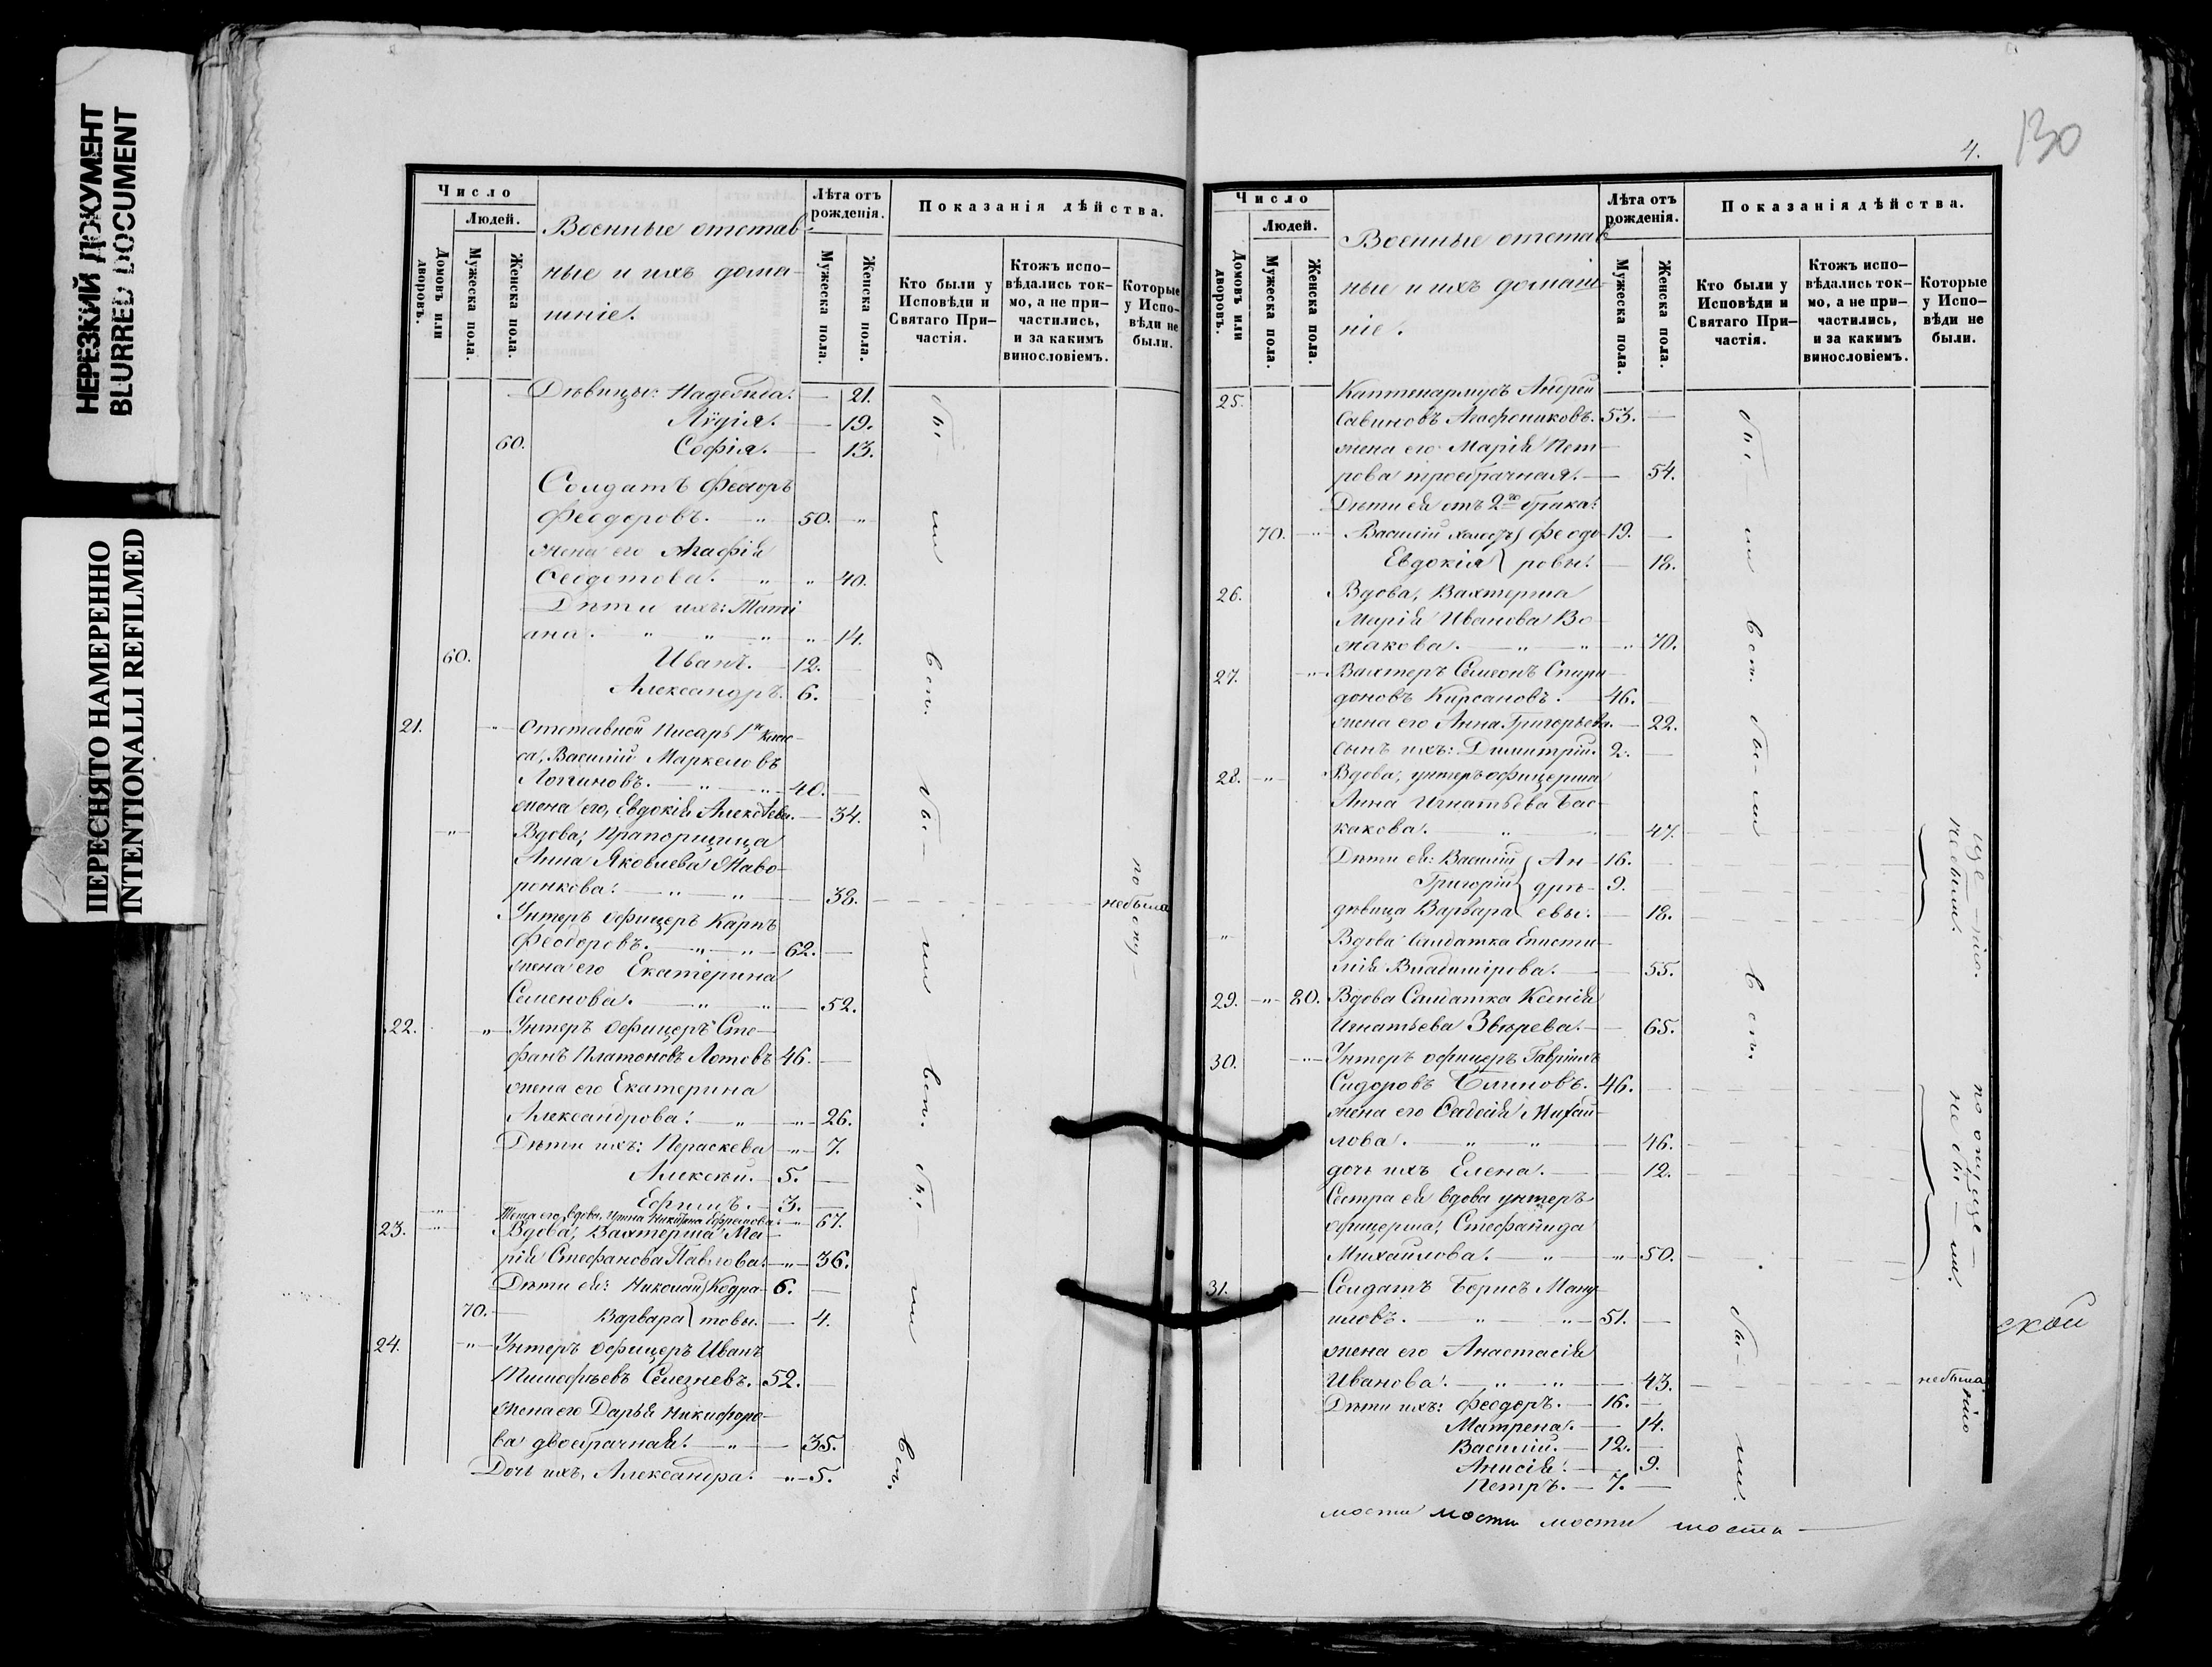 НЕРЕЗКИЙ ДОКУМЕНТ
BLURRED DOCUMENT
ПЕРЕСНЯТО НАМЕРЕННО
INTENTIONALLI REFILMED
Число
Людей.
Домовъ или дворовъ.
Мужеска пола.
Женска пола.
Военные отстав-
ные и ихъ дома-
шніе.
Лѣта отъ рожденія.
Мужеска пола.
Женска пола.
Показанія дѣйства.
Кто были у Исповѣди и Святаго При-частія.
Ктожъ испо-вѣдались ток-мо, а не при-частились, и за какимъ винословіемъ.
Которые у Испо-вѣди не были.
Дѣвицы: Надежда. — 21.
Лѵдія. — 19.
60. Софія. — 13.
Солдатъ Феодоръ
Феодоровъ. — „ — 50. — „
жена его Агафія
Федотова. „ „ 40.
Дѣти ихъ: Тати
ана. „ „ „ „ 14.
60. Иванъ. — 12. —
Александръ. 6. —
21. „ Отставной Писарь 1го клас-
са, Василій Маркеловъ
Логиновъ. „ „ 40. —
жена его, Евдокія Алексѣева. — 34.
„ Вдова, Прапорщица
Анна Яковлева Жаво-
ронкова. „ „ — 38. небыла
Унтеръ офицеръ Карпъ
Феодоровъ. „ „ 62. —
жена его Екатерина
Семенова. „ „ — 52.
22. „ Унтеръ офицеръ Сте-
фанъ Платоновъ Лотовъ 46. —
жена его Екатерина
Александрова. „ „ 26.
Дѣти ихъ: Параскева „ 7.
Алексѣй. 5. —
Ефимъ. 3. —
„ Теща его, вдова, Никитина Ефремова. „ 67.
23. „ Вдова, Вахтерша Ма-
рія Стефанова Павлова. „ 36.
Дѣти ея: Николай } Кодра- 6. —
70. — Варвара } товы. — 4.
24. „ Унтеръ офицеръ Иванъ
Тимофѣевъ Селезневъ. 52. —
жена его Дарья Никифоро-
ва двоебрачная. „ — 35.
Дочь ихъ, Александра. „ 5.
бы-
ли
вси.
бы-
ли
вси.
бы-
ли
вси.
130
4.
Число
Людей.
Домовъ или дворовъ.
Мужеска пола.
Женска пола.
Военные отстав
ные и ихъ домаш-
ніе.
Лѣта отъ рожденія.
Мужеска пола.
Женска пола.
Показанія дѣйства.
Кто были у Исповѣди и Святаго При-частія.
Ктожъ испо-вѣдались ток-мо, а не при-частились, и за какимъ винословіемъ.
Которые у Испо-вѣди не были.
25. Каптенармусъ Андрей
Савиновъ Агафониковъ. 53. —
жена его Марія Пет-
рова троебрачная. — 54.
Дѣти ея отъ 2го брака:
70. „ Василій холостъ } Феодо- 19. —
Евдокія } ровы. — 18.
26. Вдова, Вахтерша
Марія Иванова Во-
жакова. „ „ „ 70.
27. „ Вахтеръ Симеонъ Спири-
доновъ Кирсановъ. 46. —
жена его Анна Григорьева. — 22.
сынъ ихъ: Димитрій. 2. —
28. „ Вдова, унтеръ офицерша
Анна Игнатьева Бас-
какова. „ „ — 47.
Дѣти ея: Василій } Ан- 16. —
Григорій } дре- 9. —
дѣвица Варвара } евы. — 18.
„ Вдова Солдатка Еписти-
мія Владимірова. — 55.
29. „ 80. Вдова Солдатка Ксенія
Игнатьева Звѣрева. — 65.
30. „ Унтеръ офицеръ Гавріилъ
Сидоровъ Блиновъ. 46. —
жена его Михай-
лова. „ „ — 46.
дочь ихъ Елена. — 12.
Сестра ея вдова унтеръ
офицерша, Стефанида
Михайлова. „ „ 50.
31. — Солдатъ Борисъ Ману-
иловъ. „ „ 51. —
жена его Анастасія
Иванова. „ „ — 43. небыла
Дѣти ихъ: Феодоръ. 16. —
Матрена. — 14.
Василій. 12. —
Анисія. — 9.
Петръ. — 7. —
бы-
ли
вси.
бы-ли
вси.
бы-
ли.
не были.
по опуще-
нію.
не бы-ли.
ской
мости мости мости моста